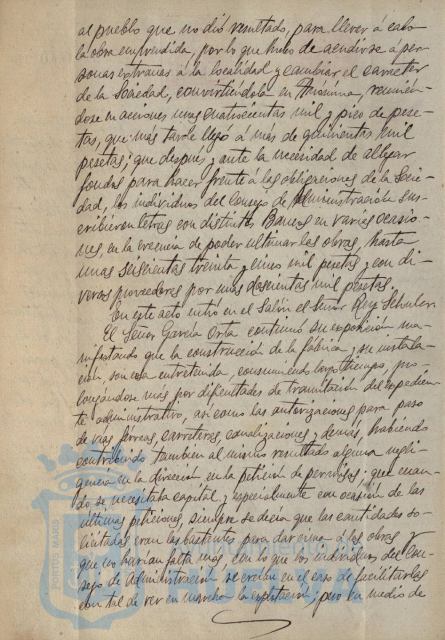 al pueblo que no dió resultado, para llevar á cabo
la obra emprendida, por lo que hubo de acudirse a per-
sonas extrañas á la localidad y cambiar el caracter
de la Sociedad, convirtiéndola en Anónima, reunién-
dose en acciones unas cuatrocientas mil y pico de pese-
tas, que más tarde llegó a más de quinientas mil
pesetas; que después y ante la necesidad de allegar
fondos para hacer frente á las obligaciones de la Socie-
dad, los individuos del Consejo de Administración sus-
cribieron letras con distintos Bancos en varias ocasio-
nes, en la creencia de poder ultimar las obras, hasta
unas seiscientas treinta y cinco mil pesetas y con di-
versos proveedores por unas doscientas mil pesetas.
En este acto entró en el Salón el Señor Ruiz Schulen
El Señor García Orta continuó su exposición ma-
nifestando que la construcción de la fábrica y su instala-
ción, son cosa entretenida, consumiendo largo tiempo, pro-
longándose más por dificultades de tramitación del expedien-
te administrativo, así como las autorizaciones para paso
de vías férreas, carreteras, canalizaciones y demás, habiendo
contribuido tambien al mismo resultado alguna negli-
gencia en la dirección en la petición de permisos; que cuan-
do se necesitaba capital, y especialmente con ocasión de las
últimas peticiones, siempre se decía que las cantidades so-
licitadas eran las bastantes para dar cima á las obras y
que no harían falta más, con lo que los individuos del Con-
sejo de Administración se creían en el caso de facilitarlas
con tal de ver en marcha la explotación; pero en medio de
PORTUS MARIS